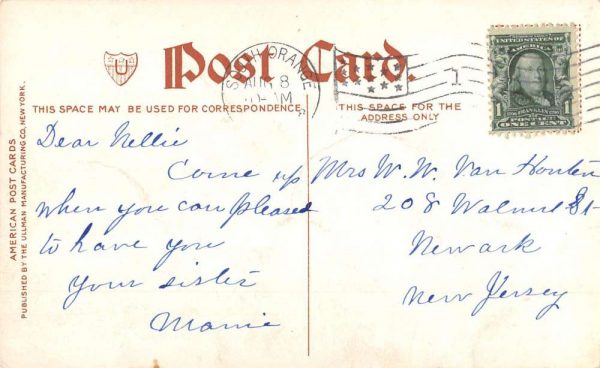 U
Post Card.
THIS SPACE MAY BE USED FOR CORRESPONDENCE.
THIS SPACE IS FOR THE
ADDRESS ONLY
AMERICAN POST CARDS
PUBLISHED BY THE ULLMAN MANUFACTURING CO, NEW YORK.
SOUTH ORANGE
8
M
1
UNITED STATES OF
AMERICA
1
1
ONE CENT
Dear Nellie
Come up
when you can pleased
to have you
your sister
Mamie
Mrs W. W. Van Houten
208 Walnut St
Newark
New Jersey